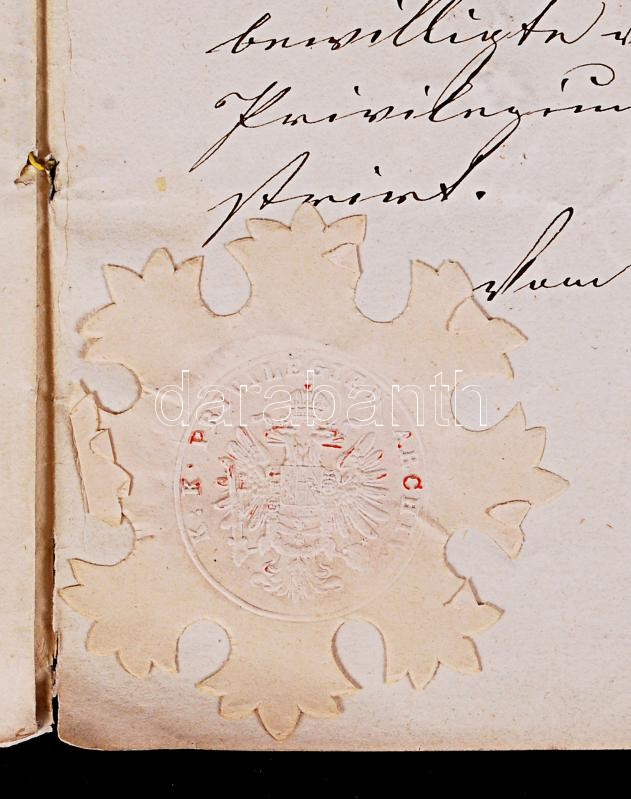 bewilligte
Privilegium
strirt.
Vom
darabanth
K. K. PRIVILEGIEN ARCHIV